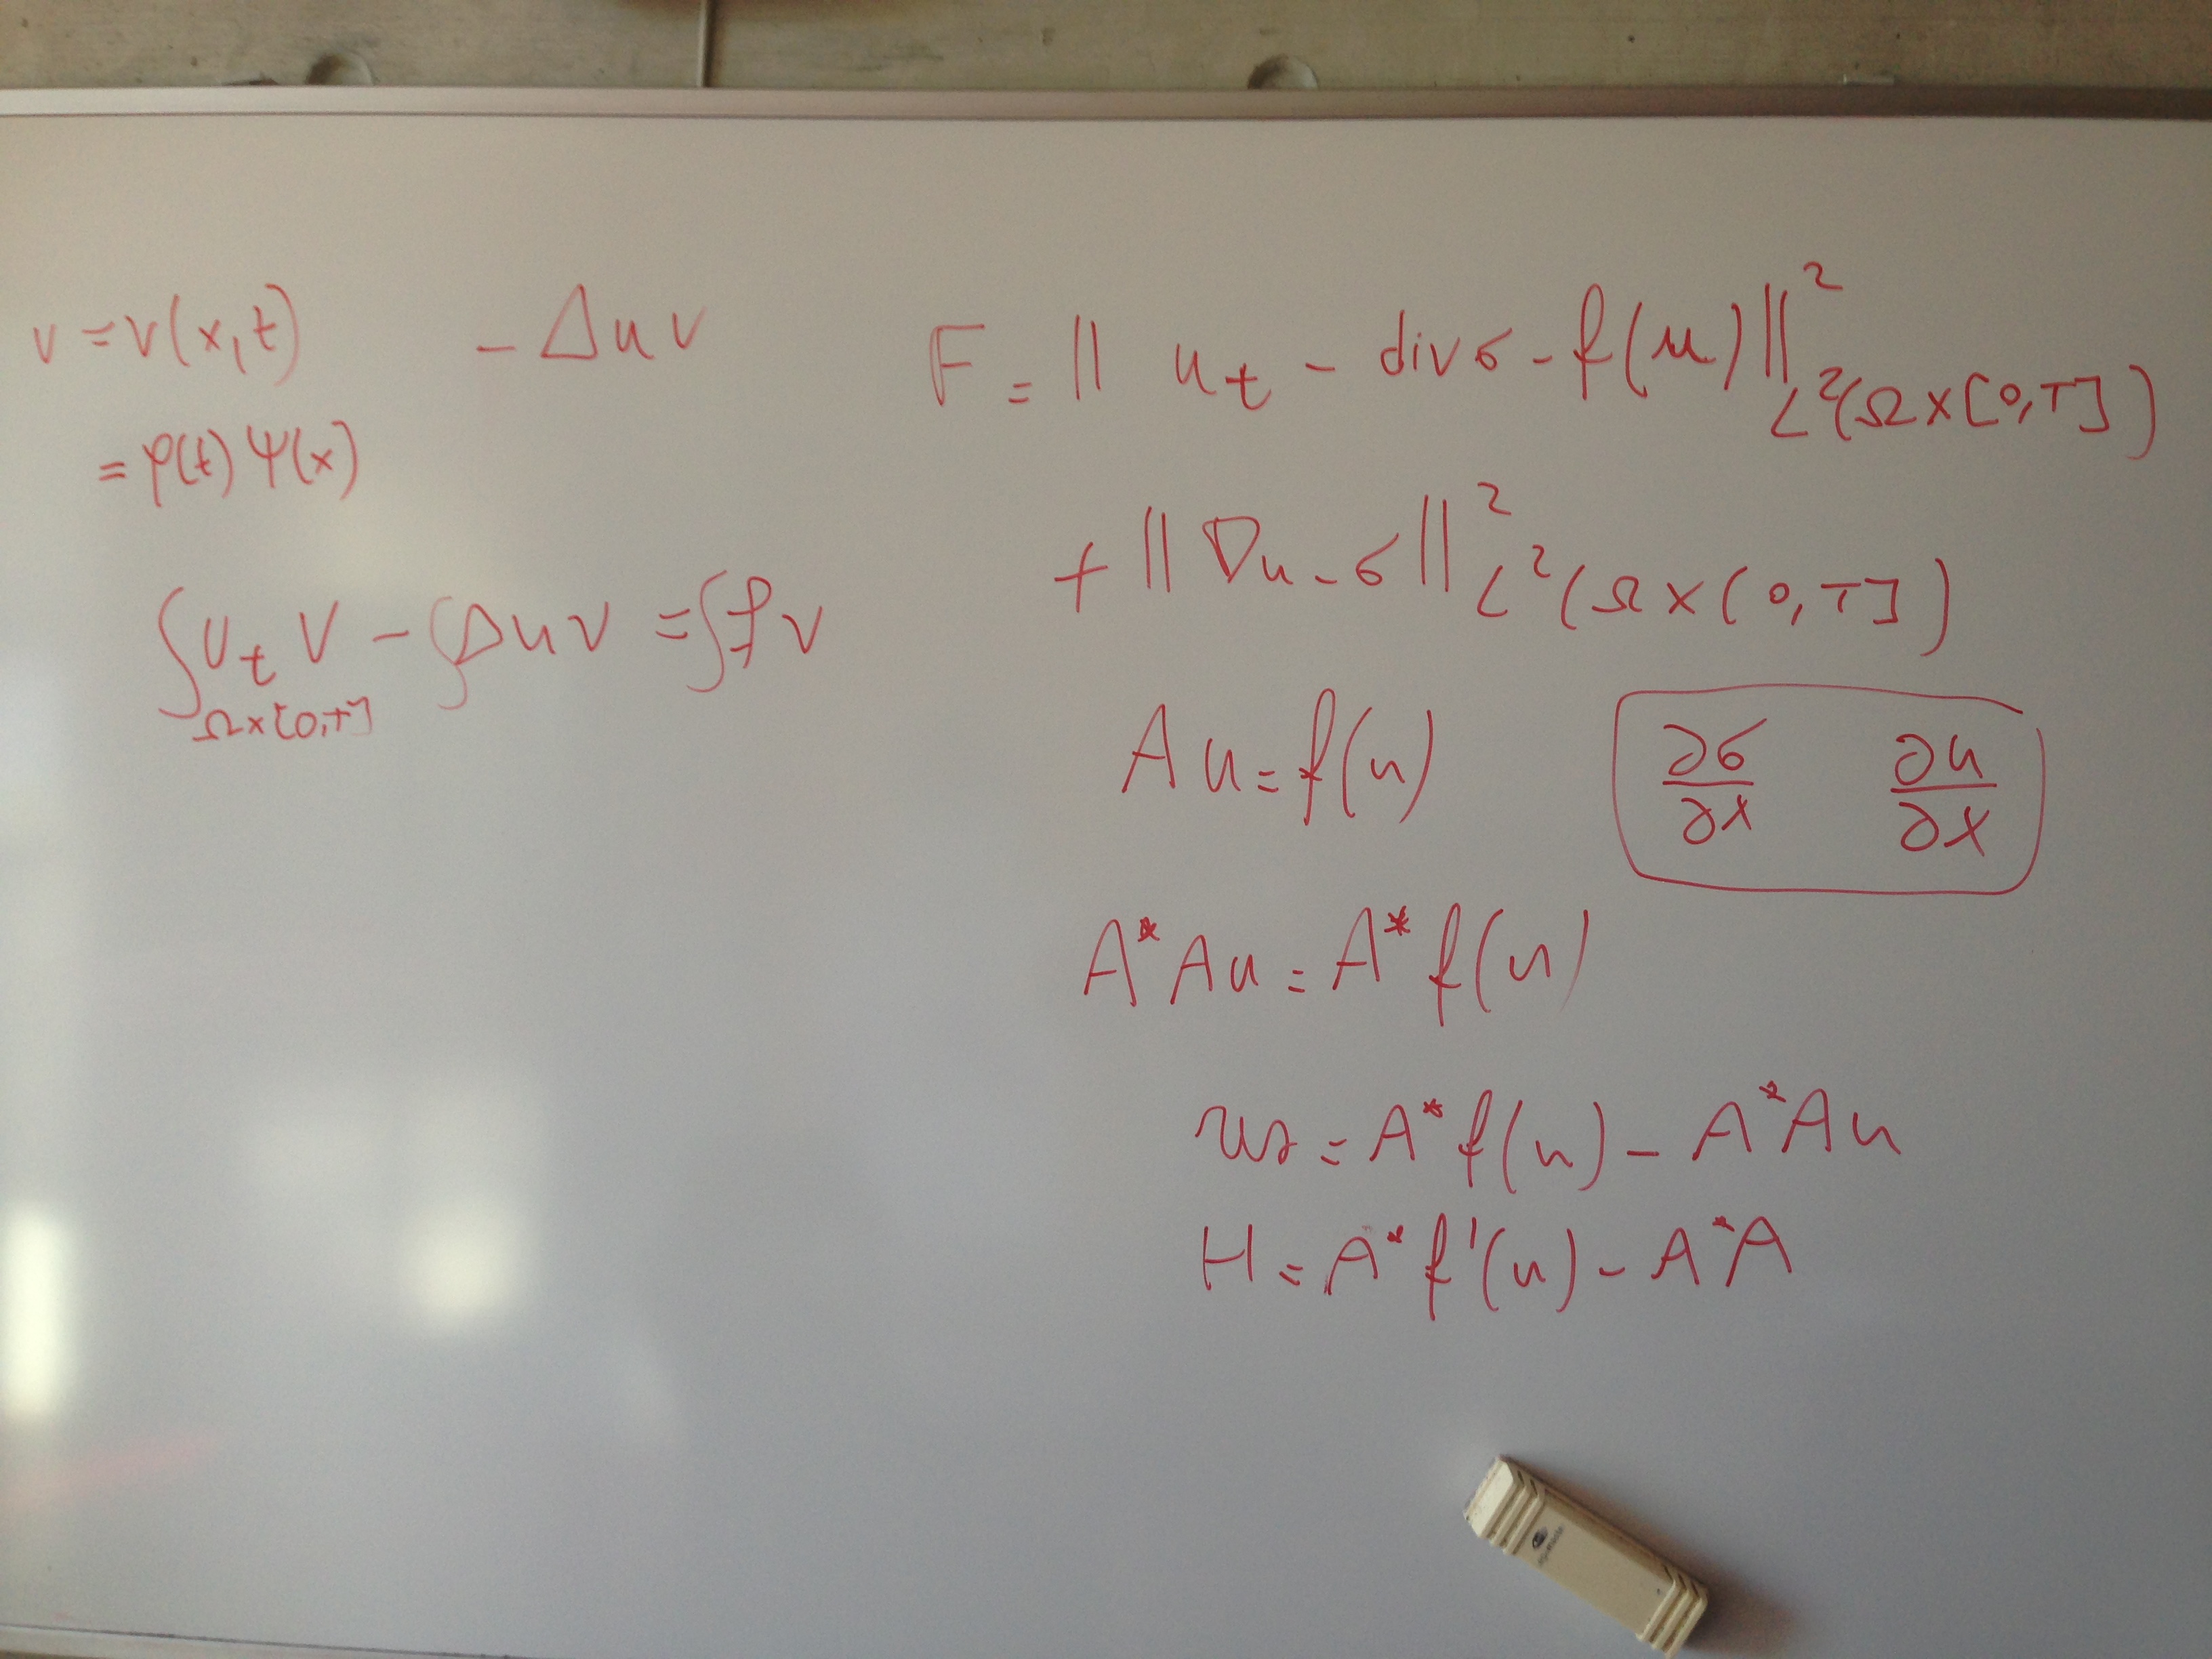 v = v(x,t)
= φ(t) ψ(x)
- Δu v
∫ u_t v - ∫ Δu v = ∫ f v
Ω×[0,T]
F = || u_t - div σ - f(u) ||² L²(Ω×[0,T])
+ || ∇u - σ ||² L²(Ω×(0,T])
Au = f(u)
∂σ/∂x ∂u/∂x
A*Au = A* f(u)
us = A* f(u) - A*Au
H = A* f'(u) - A*A